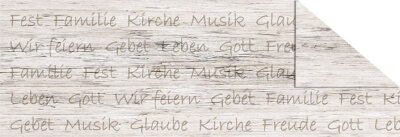 Fest Familie Kirche Musik Glau
Wir feiern Gebet Leben Gott Freu
Familie Fest Kirche Musik Glau
Leben Gott Wir feiern Gebet Familie Fest Ki
Gebet Musik Glaube Kirche Freude Gott Leb